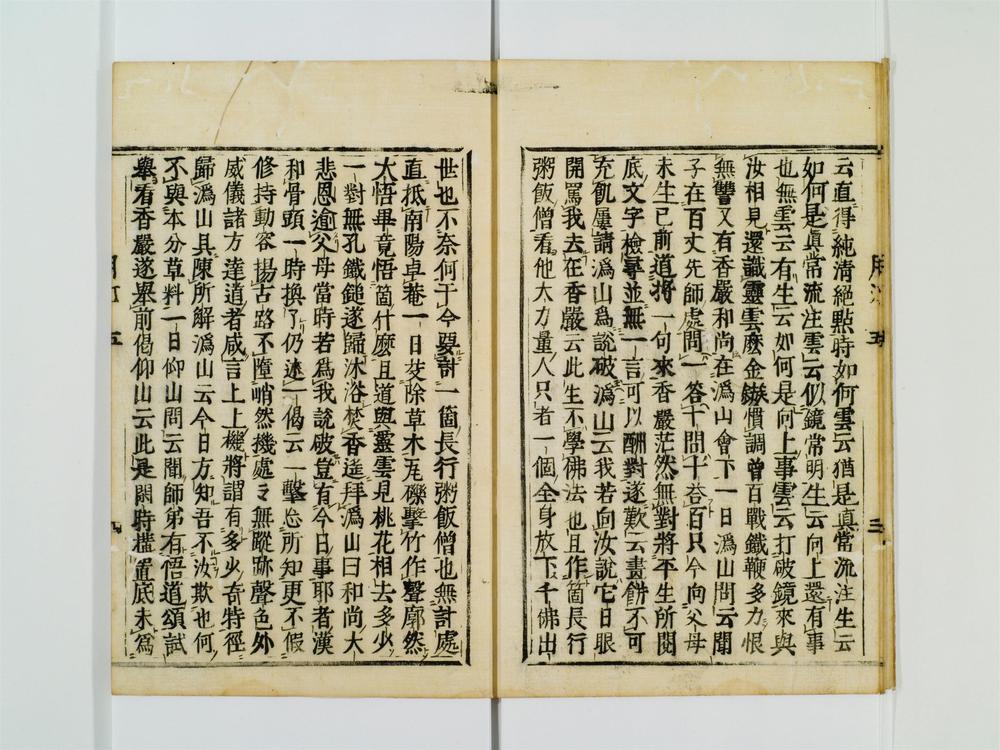 云直得純清絕點時如何雲云猶是真常流注生云
如何是真常流注雲云似鏡常明生云向上還有事
也無雲云有生云如何是向上事雲云打破鏡來與
汝相見還識靈雲麽金鏃慣調曾百戰鐵鞭多力恨
無讐又有香嚴和尚在溈山會下一日溈山問云聞
子在百丈先師處問一答十問十荅百只今向父母
未生已前道將一句來香嚴茫然無對將平生所閱
底文字檢尋並無一言可以酬對遂歎云畫餅不可
充飢屢請溈山為說破溈山云我若向汝說它日眼
開罵我去在香嚴云此生不學佛法也且作箇長行
粥飯僧看他大力量人只者一個全身放下千佛出
世也不奈何于今要討一箇長行粥飯僧也無討處
直抵南陽卓菴一日芟除草木瓦礫擊竹作聲廓然
大悟畢竟悟箇什麽且道與靈雲見桃花相去多少
一對無孔鐵鎚遂歸沐浴焚香遥拜溈山曰和尚大
悲恩逾父母當時若為我說破豈有今日事耶者漢
和骨頭一時換了仍述一偈云一擊忘所知更不假
修持動容揚古路不墮峭然機處々無蹤跡聲色外
威儀諸方達道者咸言上上機將謂有多少奇特徑
歸溈山具陳所解溈山云今日方知吾不汝欺也何
不與本分草料一日仰山問云聞師弟有悟道頌試
舉看香嚴遂舉前偈仰山云此是閑時㩀置底未為
五